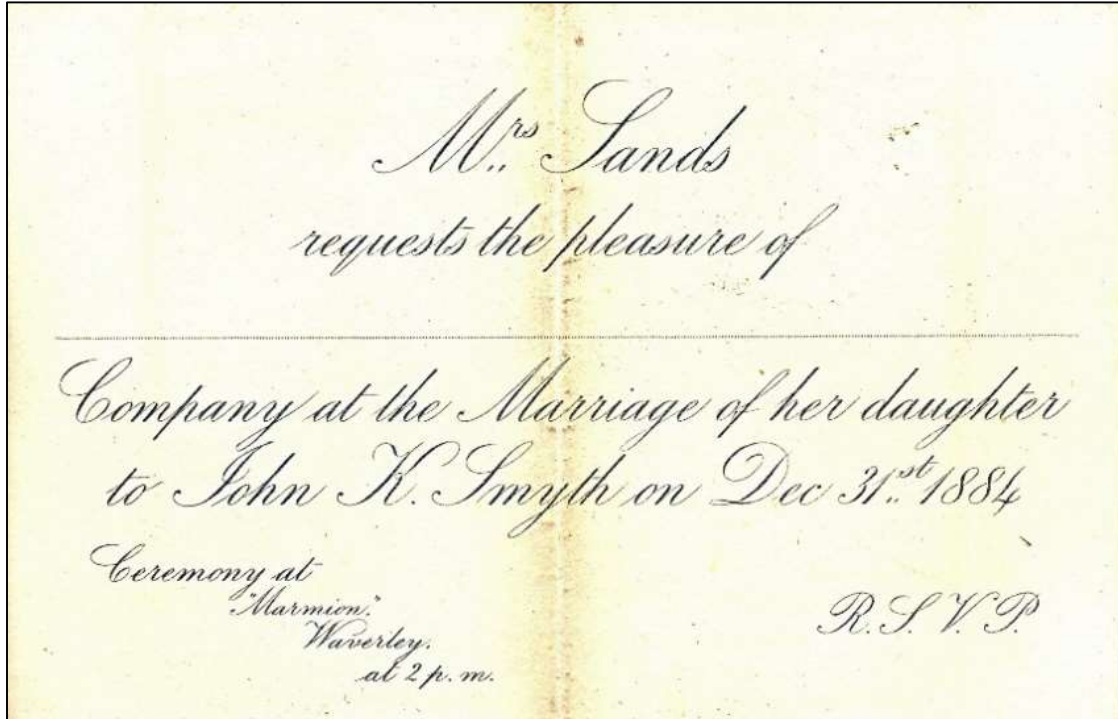 Mrs. Sands
requests the pleasure of
Company at the Marriage of her daughter
to John K. Smyth on Dec 31.st 1884
Ceremony at
"Marmion."
Waverley.
at 2 p.m.
R.S.V.P.